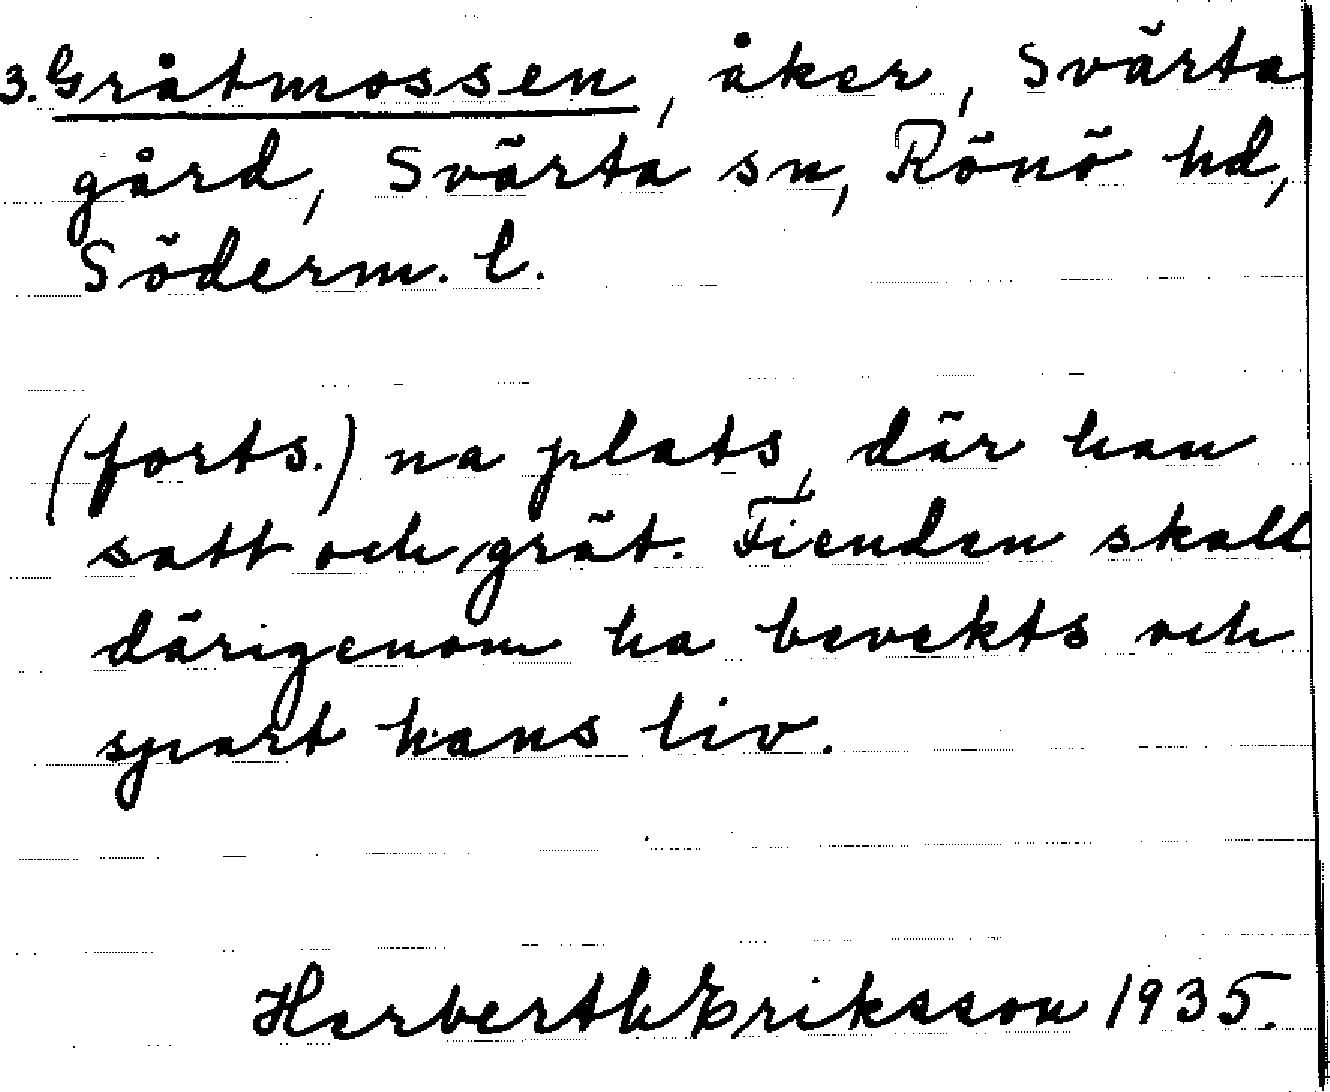 3. Gråtmossen, åker, Svärta
gård, Svärta sn, Rönö hd,
Söderm. l.
(forts.) na plats, där han
satt och grät. Fienden skall
därigenom ha bevekts och
spart hans liv.
Herberth Eriksson 1935.